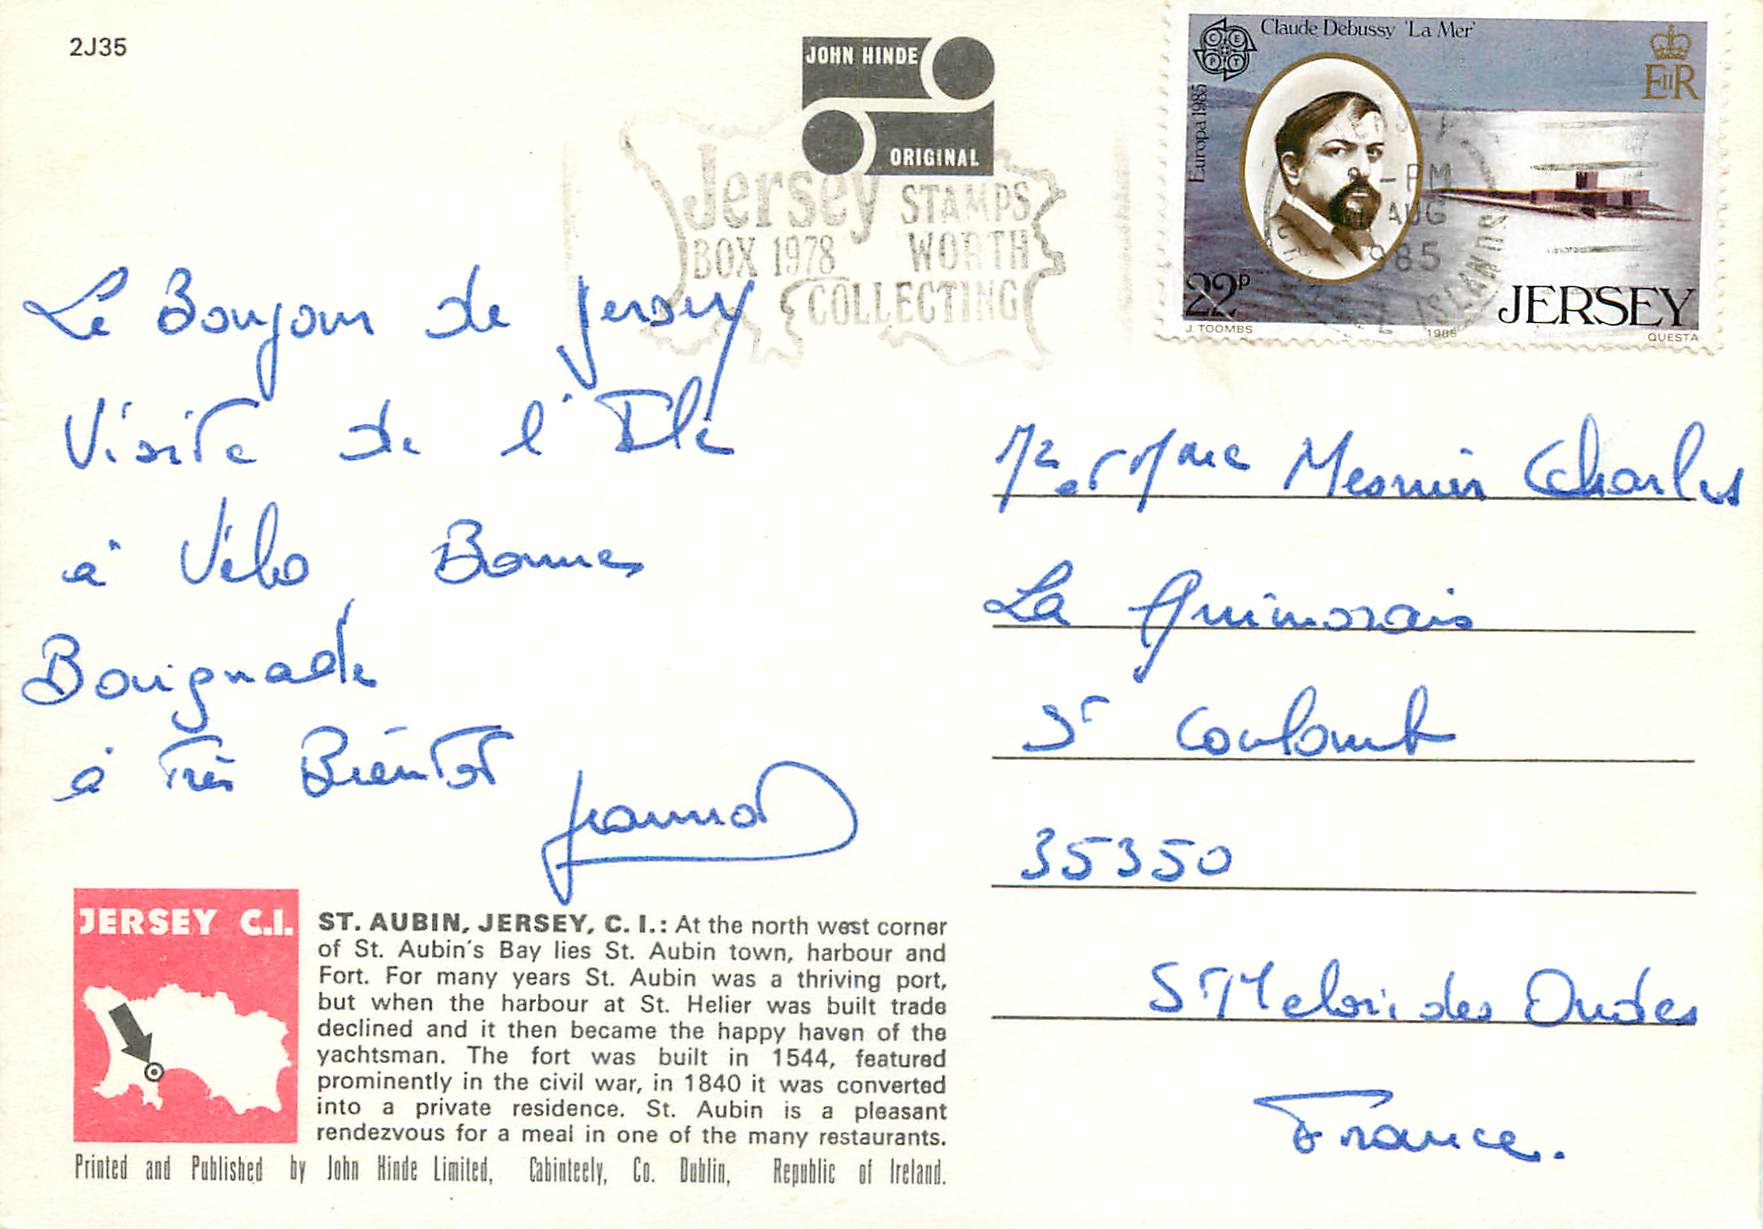 2J35
JOHN HINDE
ORIGINAL
Jersey STAMPS
BOX 1978 WORTH
COLLECTING
Claude Debussy 'La Mer'
CEPT
Europa 1985
EIIR
PM
AUG
1985
ISLANDS
22p
JERSEY
J. TOOMBS
1985
QUESTA
Le Bonjour de Jersey
Visite de l'Ile
à Vélo Bonnes
Baignade
à Très Bientot
Jeannot
Mr et Mme Mesnier Charles
La Guimorais
St Coulomb
35350
St Meloir des Ondes
France.
JERSEY C.I.
ST. AUBIN, JERSEY, C. I.: At the north west corner
of St. Aubin's Bay lies St. Aubin town, harbour and
Fort. For many years St. Aubin was a thriving port,
but when the harbour at St. Helier was built trade
declined and it then became the happy haven of the
yachtsman. The fort was built in 1544, featured
prominently in the civil war, in 1840 it was converted
into a private residence. St. Aubin is a pleasant
rendezvous for a meal in one of the many restaurants.
Printed and Published by John Hinde Limited, Cabinteely, Co. Dublin, Republic of Ireland.